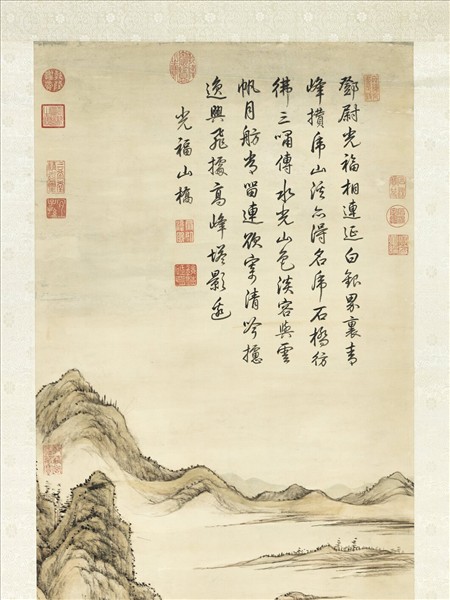 鄧尉光福相連延白銀界裏青
峰攢虎山溪亦得名虎石橋彷
彿三嘯傳水光山色淡容與雲
帆月舫常留連欲寄清吟攄
逸興飛據高峰塔影邊
光福山橋